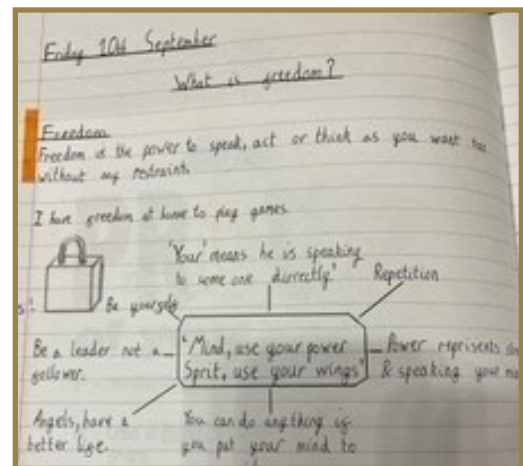 Friday 10th September
What is freedom?
Freedom
Freedom is the power to speak, act or think as you want too
without any restraint.
I have freedom at home to play games.
'Your' means he is speaking
to some one dirrectly.'
Repetition
Be yourself
Be a leader not a
follower.
'Mind, use your power
Sprit, use your wings'
Power reprisents
& speaking your
Angels, have a
better life.
You can do anything if
you put your mind to